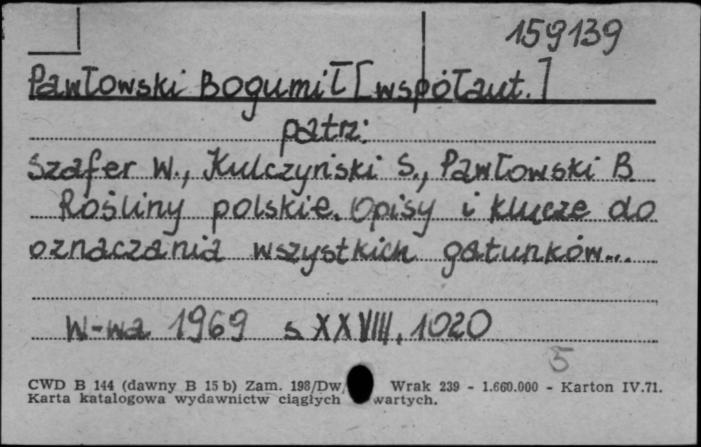 159139
Pawłowski Bogumił [współaut.]
patrz:
Szafer W., Kulczyński S., Pawłowski B.
Rośliny polskie. Opisy i klucze do
oznaczania wszystkich gatunków...
W-wa 1969 s XXVIII, 1020
5
CWD B 144 (dawny B 15 b) Zam. 198/Dw/ Wrak 239 - 1.660.000 - Karton IV.71.
Karta katalogowa wydawnictw ciągłych wartych.